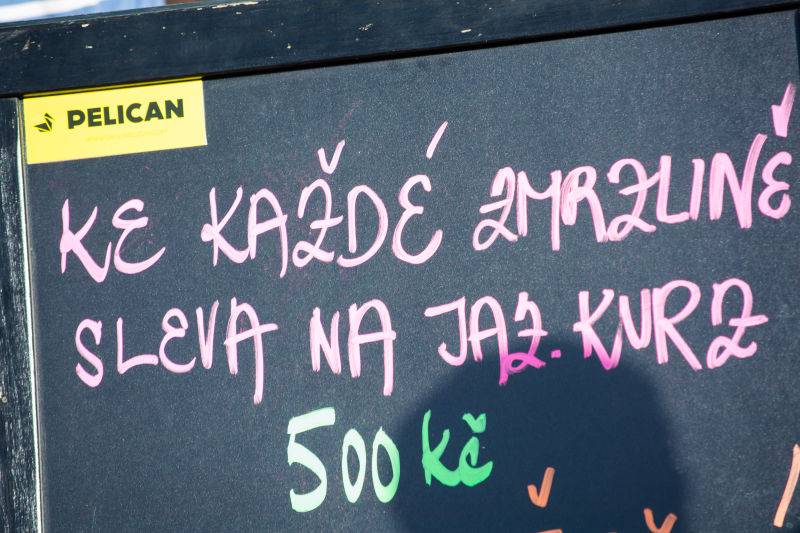 PELICAN
KE KAŽDÉ ZMRZLINĚ
SLEVA NA JAZ. KURZ
500 Kč